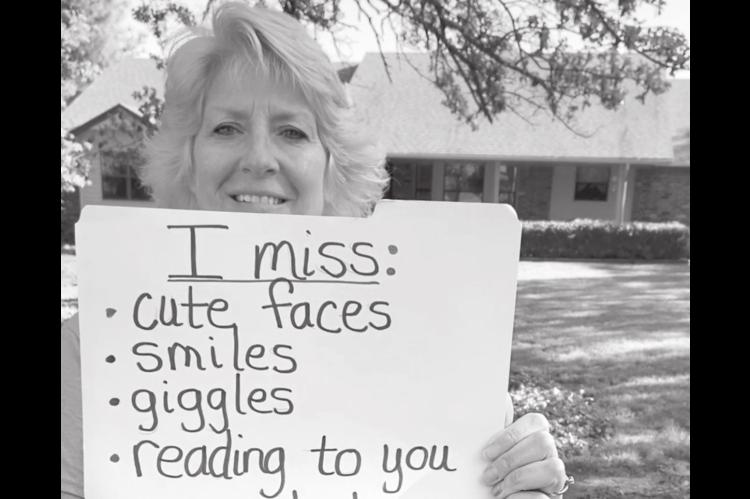 I miss:
• cute faces
• smiles
• giggles
• reading to you